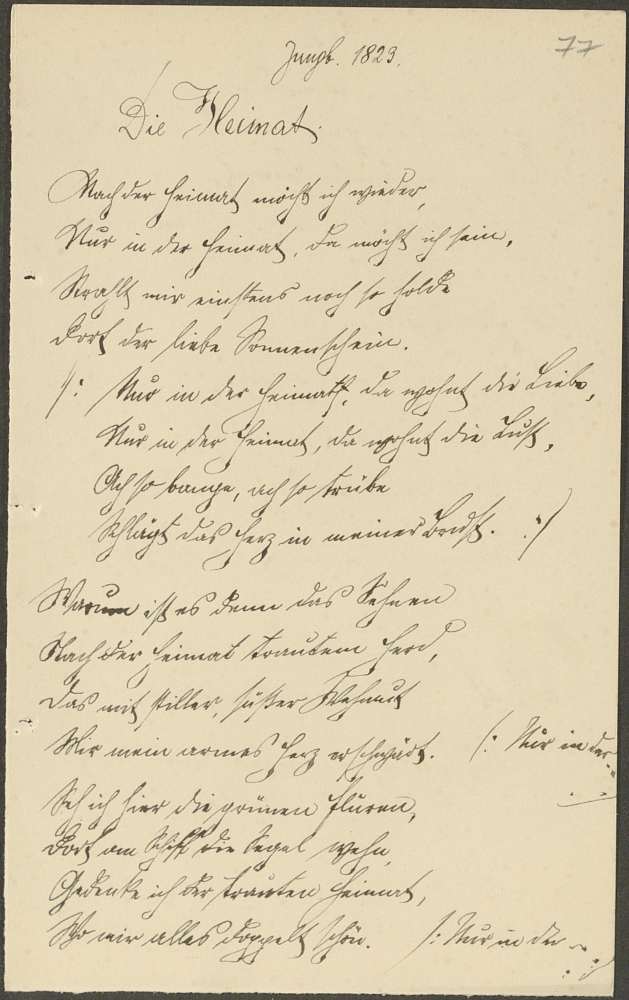 77
1823.
Die Heimat.
Nach der Heimat möcht ich wieder,
Nur in der Heimat, da möcht ich sein,
Strahlt mir einstens noch so holde
Dort der liebe Sonnenschein.
/: Nur in der Heimath, da wohnt die Liebe,
Nur in der Heimat, da wohnt die Lust,
Ach so bange, ach so trübe
Schlägt das Herz in meiner Brust. :/
Warum ist es denn das Sehnen
Nach der Heimat trautem Herd,
Das mit stiller, süßer Wehmut
Mir mein armes Herz /: Nur in der
Seh ich hier die grünen Fluren,
Dort am Schiff die Segel wehn,
Gedenke ich der trauten Heimat,
Wo mir alles doppelt schön. /: Nur in der :/